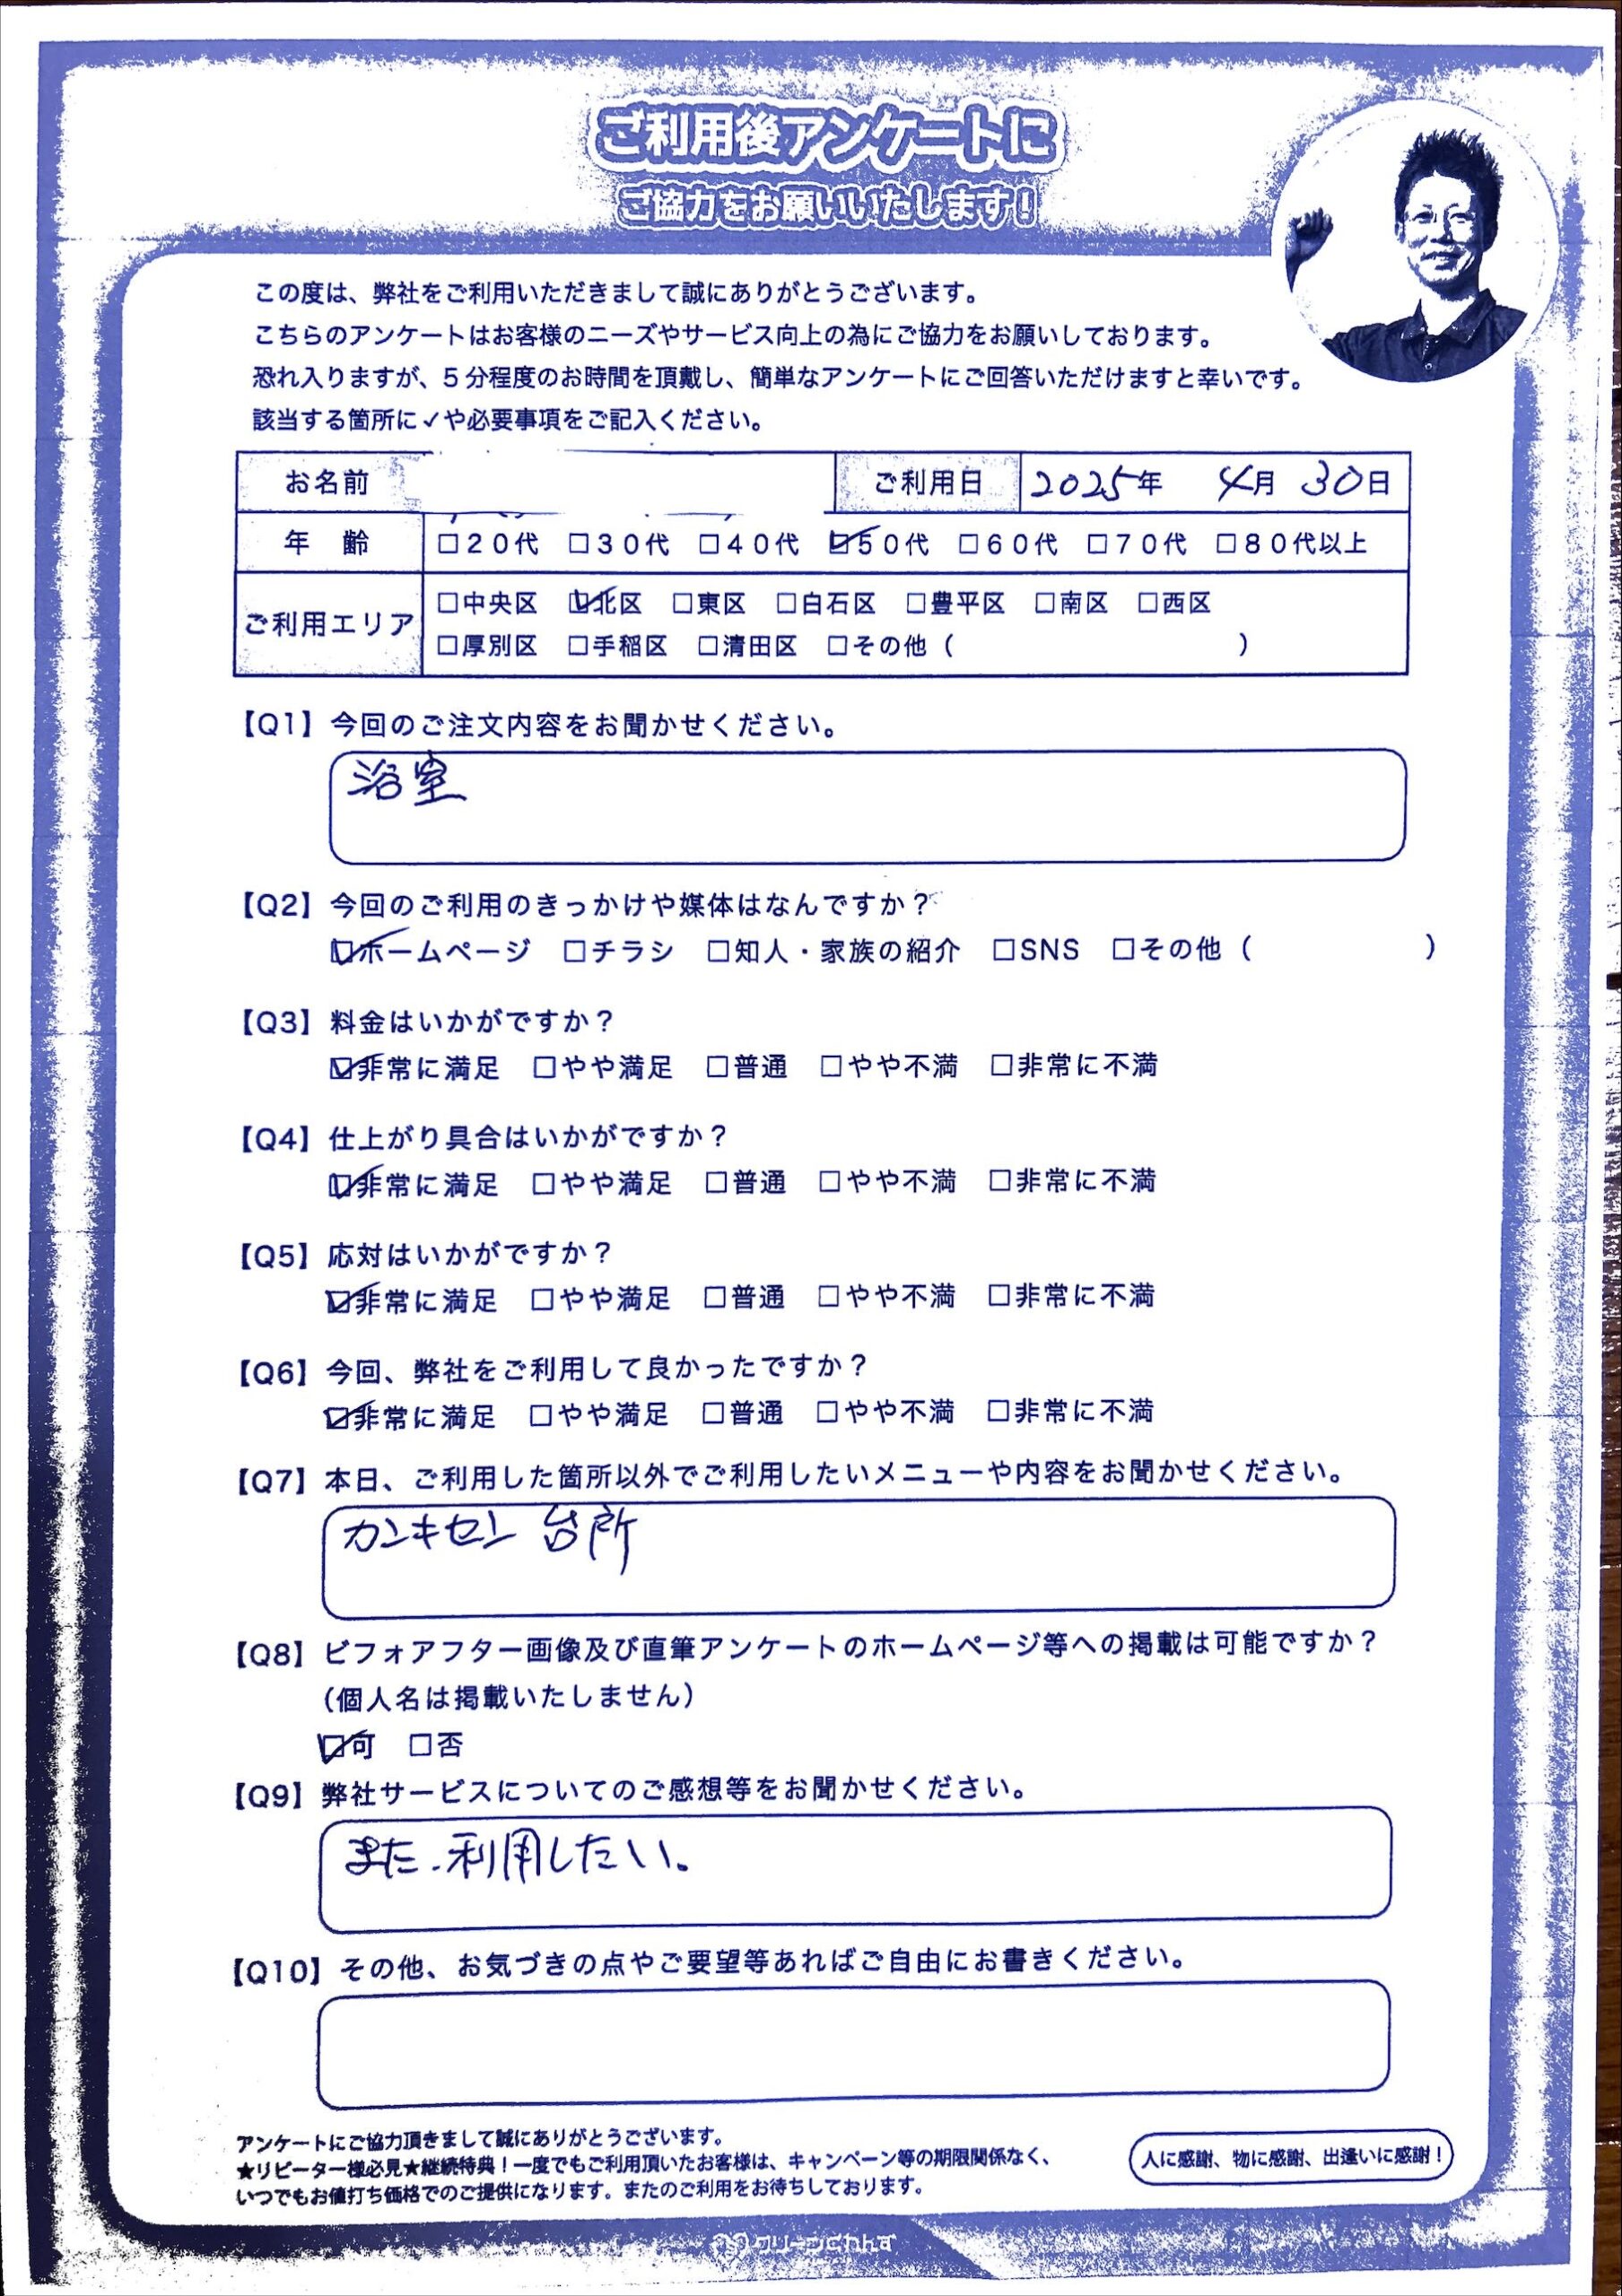 ご利用後アンケートに
ご協力をお願いいたします！
この度は、弊社をご利用いただきまして誠にありがとうございます。
こちらのアンケートはお客様のニーズやサービス向上の為にご協力をお願いしております。
恐れ入りますが、5分程度のお時間を頂戴し、簡単なアンケートにご回答いただけますと幸いです。
該当する箇所に✓や必要事項をご記入ください。
お名前 ご利用日 2025年 4月 30日
年 齢 □20代 □30代 □40代 ☑50代 □60代 □70代 □80代以上
ご利用エリア □中央区 ☑北区 □東区 □白石区 □豊平区 □南区 □西区
□厚別区 □手稲区 □清田区 □その他（ ）
【Q1】今回のご注文内容をお聞かせください。
浴室
【Q2】今回のご利用のきっかけや媒体はなんですか？
☑ホームページ □チラシ □知人・家族の紹介 □SNS □その他（ ）
【Q3】料金はいかがですか？
☑非常に満足 □やや満足 □普通 □やや不満 □非常に不満
【Q4】仕上がり具合はいかがですか？
☑非常に満足 □やや満足 □普通 □やや不満 □非常に不満
【Q5】応対はいかがですか？
☑非常に満足 □やや満足 □普通 □やや不満 □非常に不満
【Q6】今回、弊社をご利用して良かったですか？
☑非常に満足 □やや満足 □普通 □やや不満 □非常に不満
【Q7】本日、ご利用した箇所以外でご利用したいメニューや内容をお聞かせください。
カンキセン 台所
【Q8】ビフォアフター画像及び直筆アンケートのホームページ等への掲載は可能ですか？
（個人名は掲載いたしません）
☑可 □否
【Q9】弊社サービスについてのご感想等をお聞かせください。
また、利用したい。
【Q10】その他、お気づきの点やご要望等あればご自由にお書きください。
アンケートにご協力頂きまして誠にありがとうございます。
★リピーター様必見★継続特典！一度でもご利用頂いたお客様は、キャンペーン等の期限関係なく、
いつでもお値打ち価格でのご提供になります。またのご利用をお待ちしております。
人に感謝、物に感謝、出逢いに感謝！